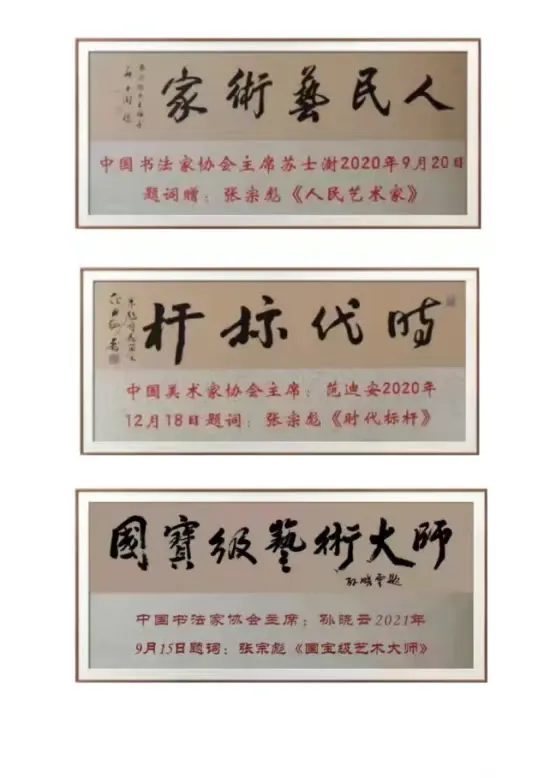 人民藝術家
中国书法家协会主席苏士澍2020年9月20日
题词赠：张宗彪《人民艺术家》
時代标杆
中国美术家协会主席：范迪安2020年
12月18日题词：张宗彪《时代标杆》
國寶级藝術大師
孙晓雲题
中国书法家协会主席：孙晓云2021年
9月15日题词：张宗彪《国宝级艺术大师》